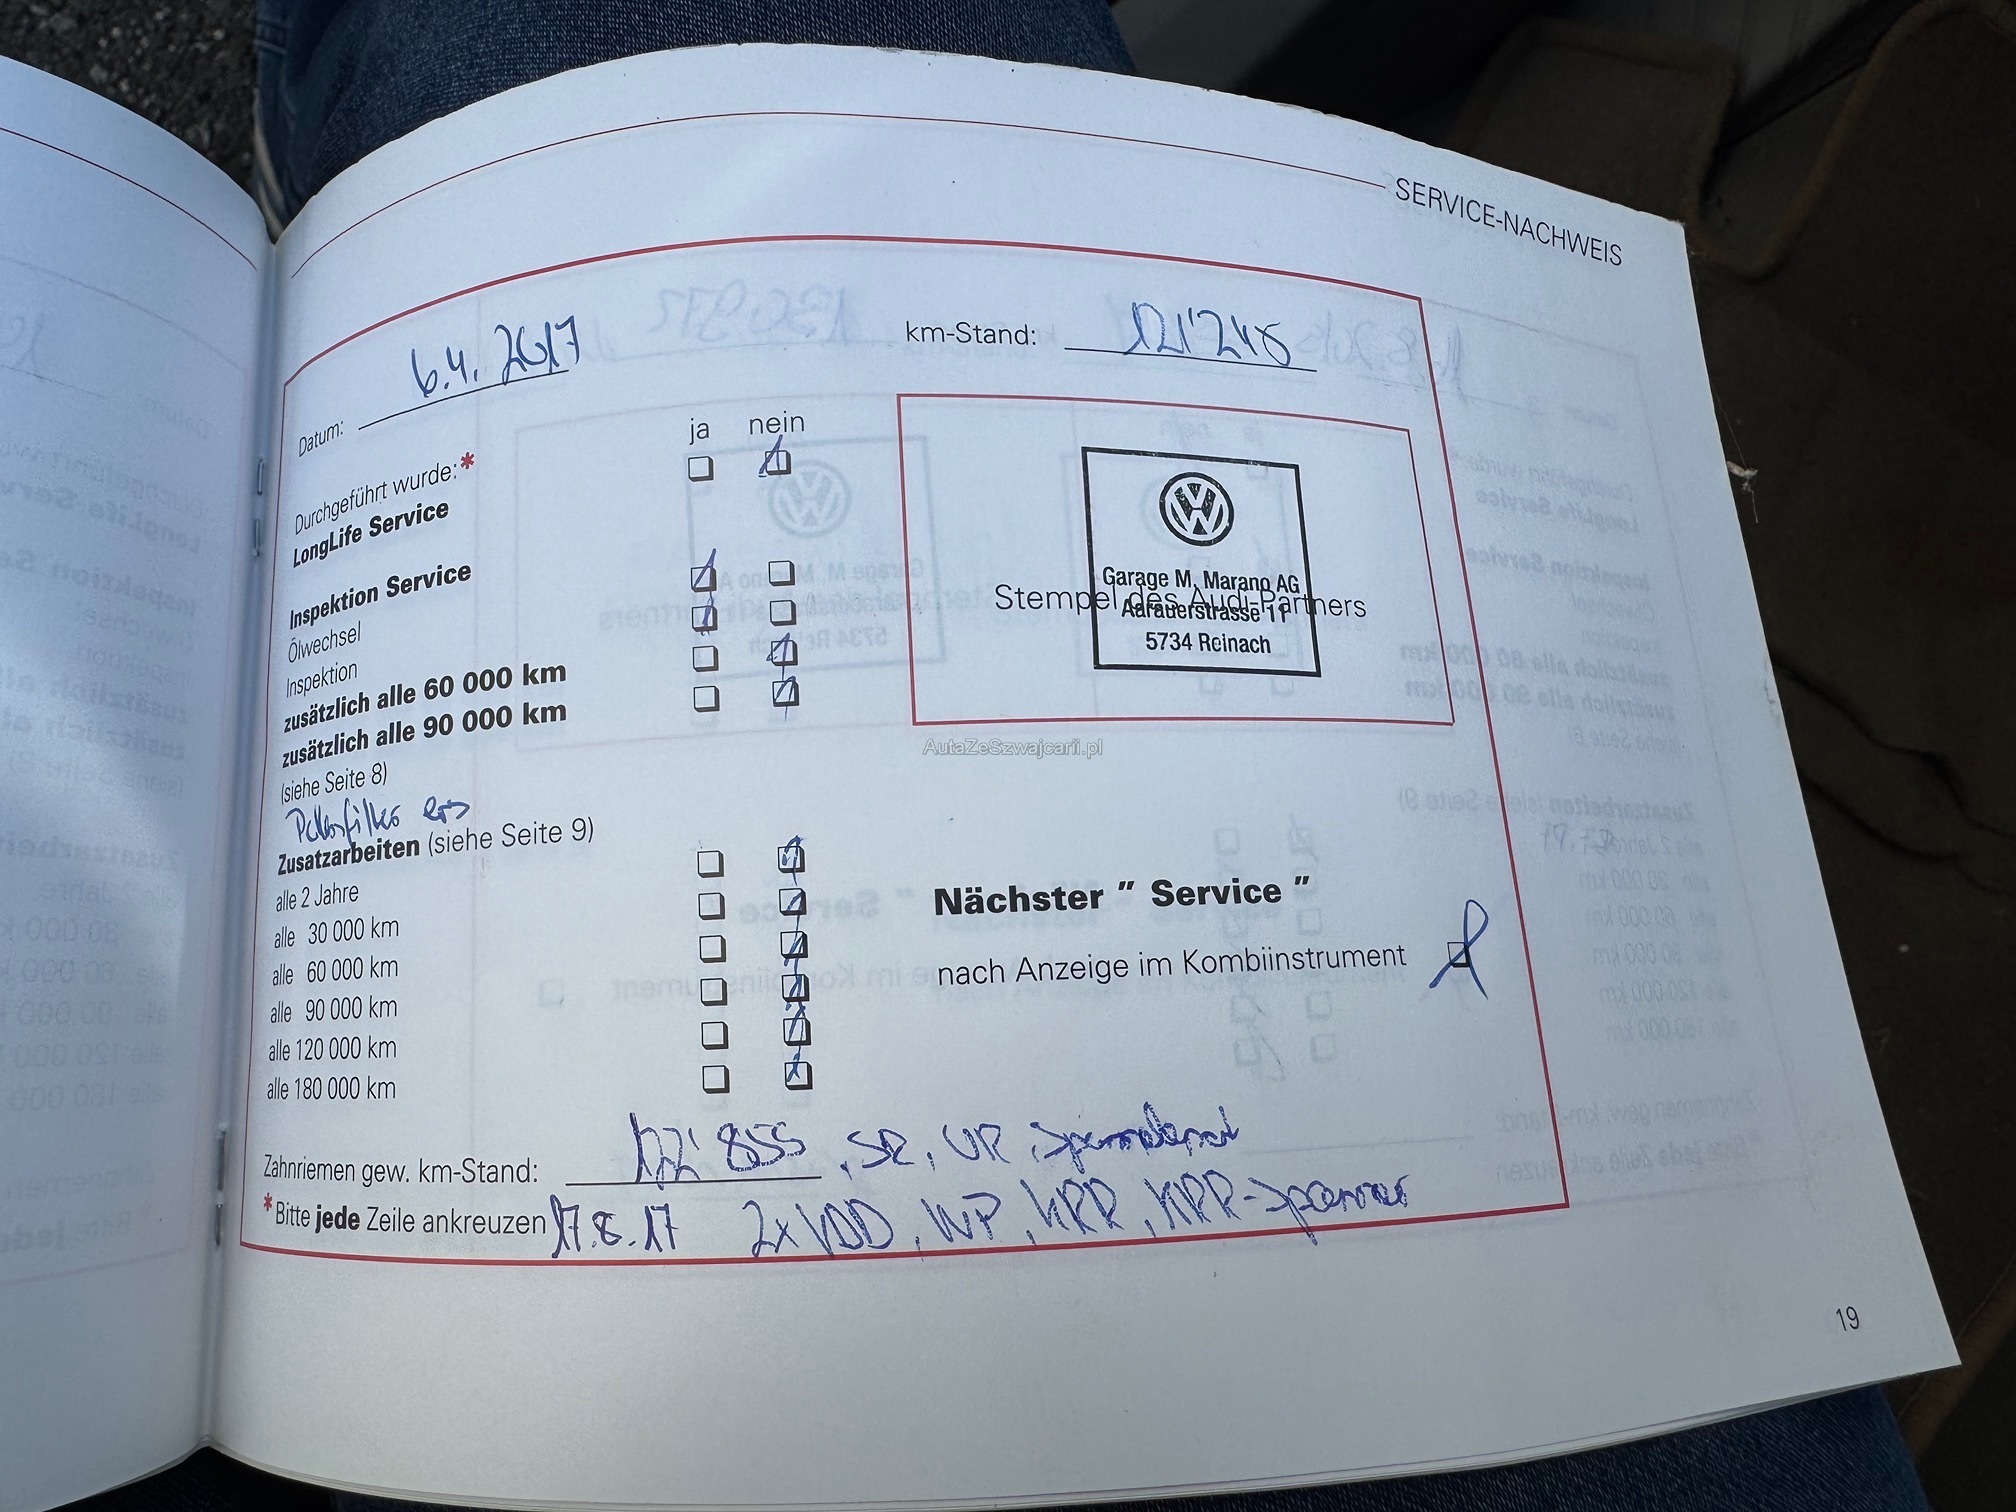 SERVICE-NACHWEIS
Datum: 6.4.2017
km-Stand: 121'248
ja nein
Durchgeführt wurde:*
LongLife Service
Inspektion Service
Ölwechsel
Inspektion
zusätzlich alle 60 000 km
zusätzlich alle 90 000 km
(siehe Seite 8)
Pollenfilter ers
Zusatzarbeiten (siehe Seite 9)
alle 2 Jahre
alle 30 000 km
alle 60 000 km
alle 90 000 km
alle 120 000 km
alle 180 000 km
Garage M. Marano AG
Stempel des Audi-Partners
Aarauerstrasse 11
5734 Reinach
AutaZeSzwajcarii.pl
Nächster " Service "
nach Anzeige im Kombiinstrument
Zahnriemen gew. km-Stand: 122'855, SR, UR,
*Bitte jede Zeile ankreuzen 17.8.17 2x VDD, WP, KRR, KRR-Spanner
19